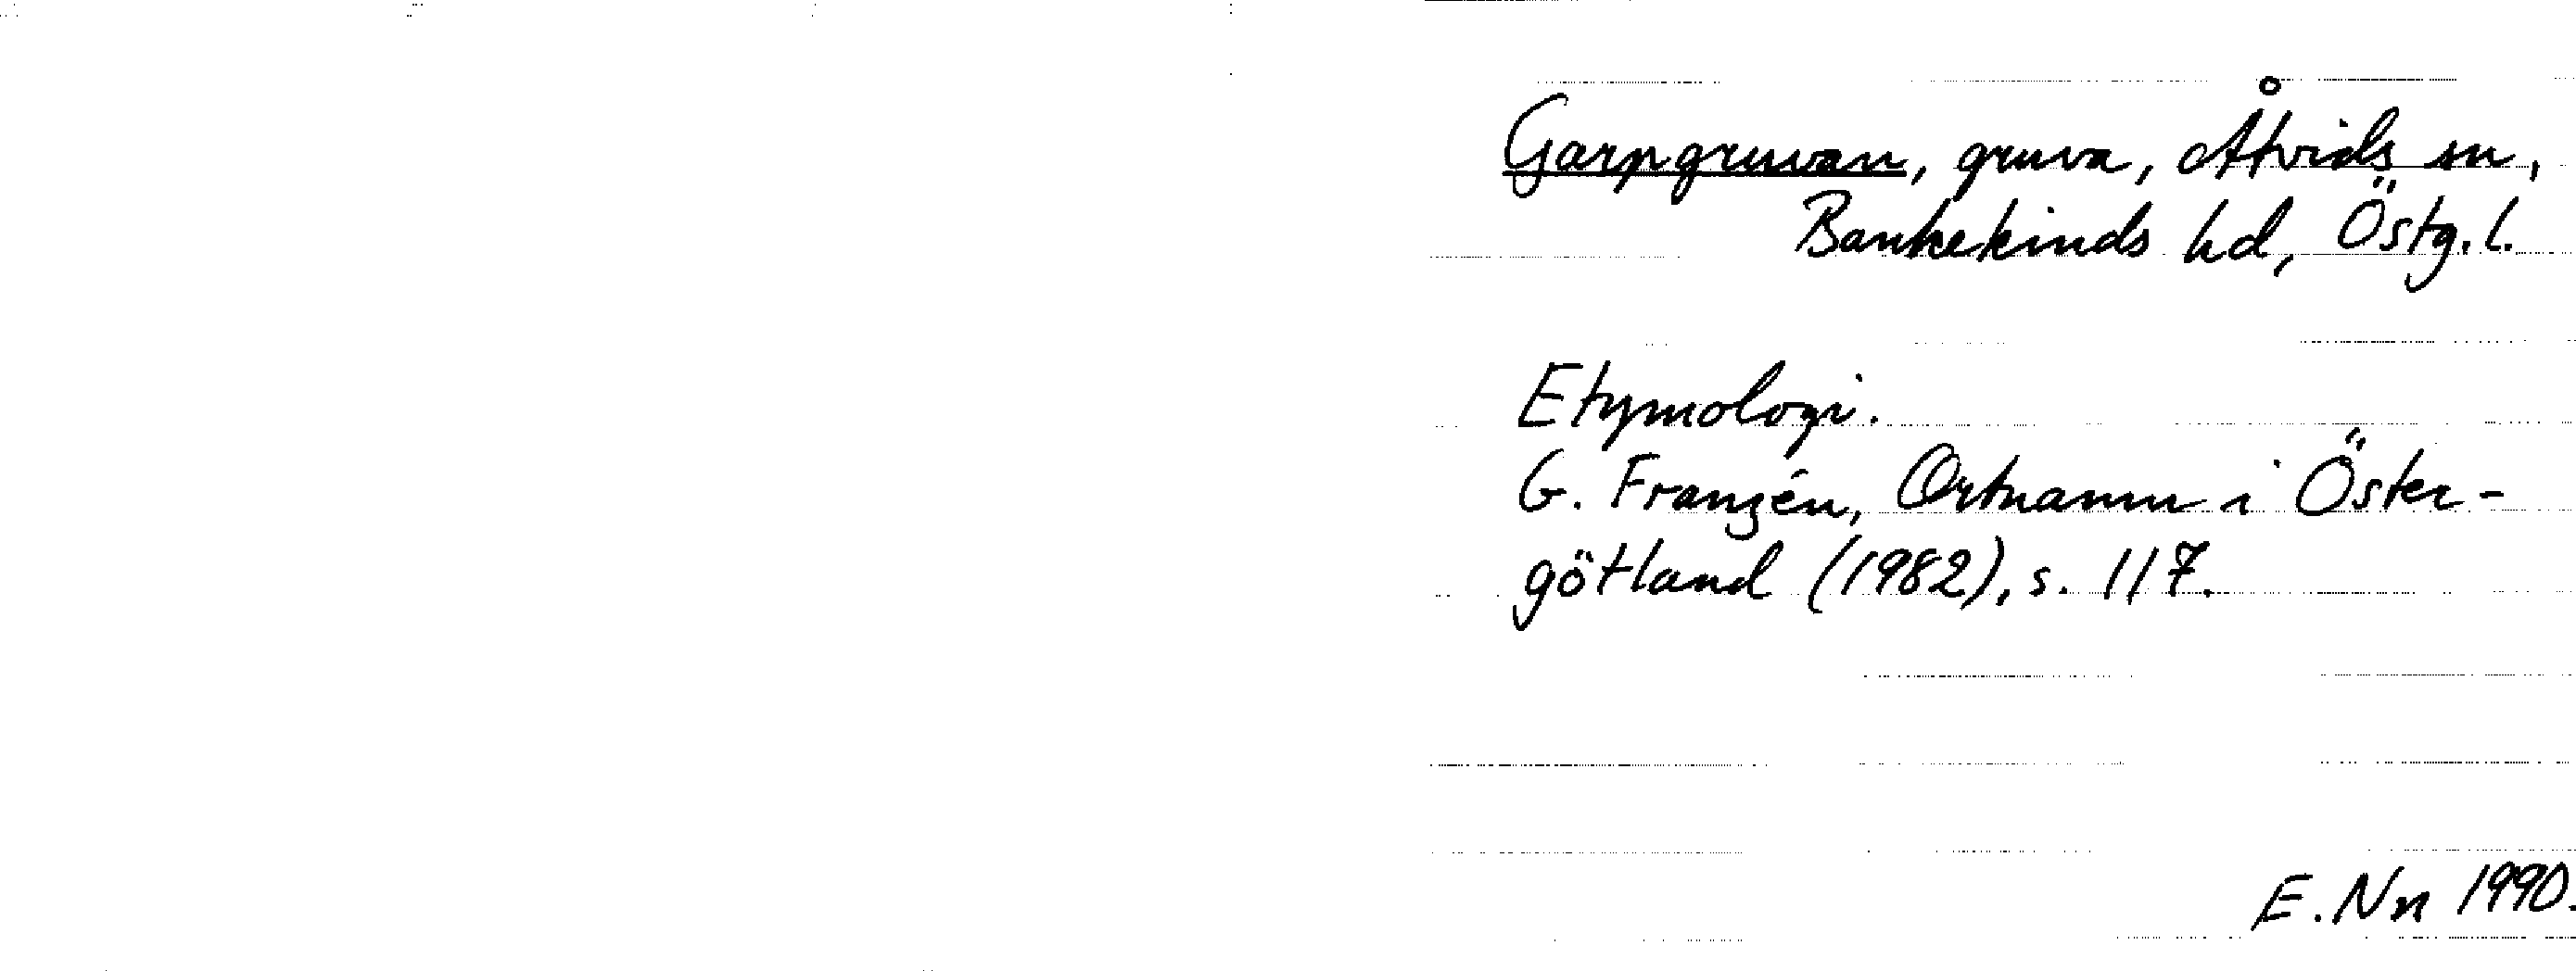 Garpgruvan, gruva, Åtvids sn,
Bankekinds hd, Östg. l.
Etymologi.
G. Franzén, Ortnamn i Öster-
götland (1982), s. 117.
E. Nn 1990.